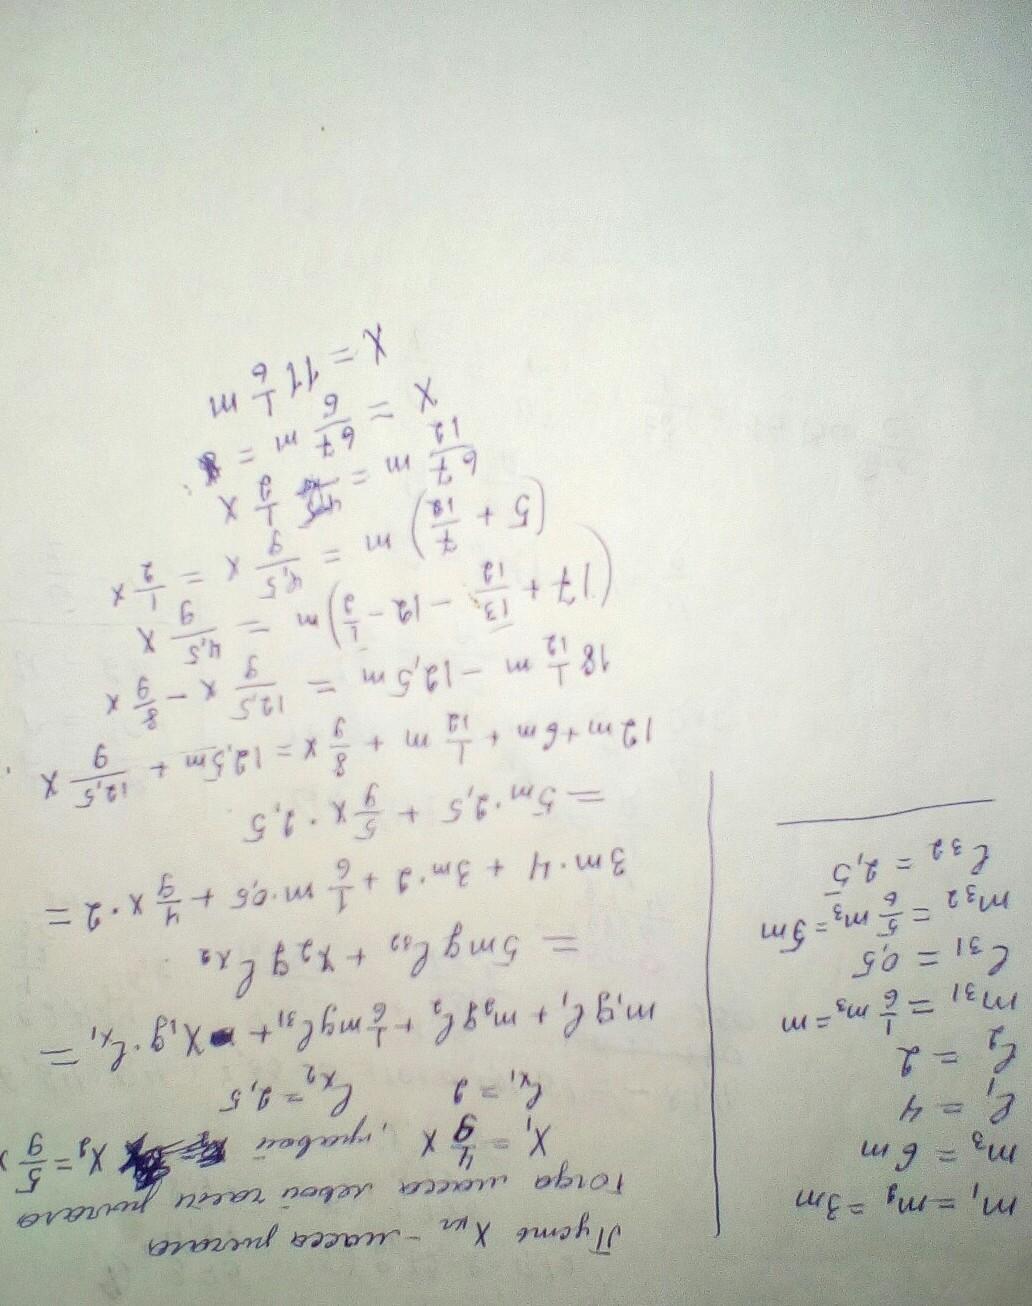 m₁ = m₂ = 3m
m₃ = 6m
ℓ₁ = 4
ℓ₂ = 2
m₃₁ = 1/6 m₃ = m
ℓ₃₁ = 0,5
m₃₂ = 5/6 m₃ = 5m
ℓ₃₂ = 2,5
Пусть X кг - масса рычага
тогда масса левой части рычага
X₁ = 4/9 X , правой X₂ = 5/9 X
ℓx₁ = 2 ℓx₂ = 2,5
m₁gℓ₁ + m₂gℓ₂ + 1/6 mgℓ₃₁ + X₁g·ℓx₁ =
= 5mgℓ₃₂ + X₂gℓx₂
3m·4 + 3m·2 + 1/6 m·0,5 + 4/9 X·2 =
= 5m·2,5 + 5/9 X·2,5
12m + 6m + 1/12 m + 8/9 X = 12,5m + 12,5/9 X
18 1/12 m - 12,5m = 12,5/9 X - 8/9 X
(17 + 13/12 - 12 - 1/2) m = 4,5/9 X
(5 + 7/12) m = 4,5/9 X = 1/2 X
67/12 m = 1/2 X
X = 67/6 m =
X = 11 1/6 m